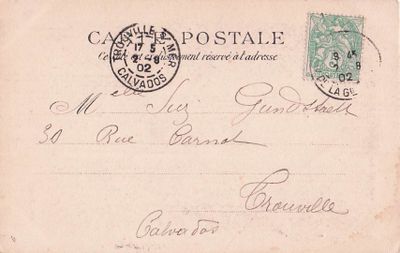 CARTE POSTALE
Ce côté est exclusivement réservé à l'adresse
TROUVILLE S. MER
17 5
2 -8
02
CALVADOS
8 45
8
02
LA GE
Melle Suz
30 Rue Carnot
Trouville
Calvados